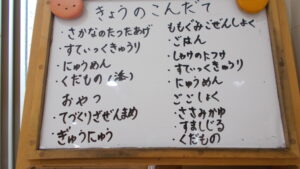 きょうのこんだて
・さかなのたつたあげ
・すてぃっくきゅうり
・にゅうめん
・くだもの
おやつ
・てづくりぎぜんまめ
・ぎゅうにゅう
ももぐみごぜんしょく
・ごはん
・しゃけのたつた
・すてぃっくきゅうり
・にゅうめん
ごごしょく
・ささみかゆ
・すましじる
・くだもの